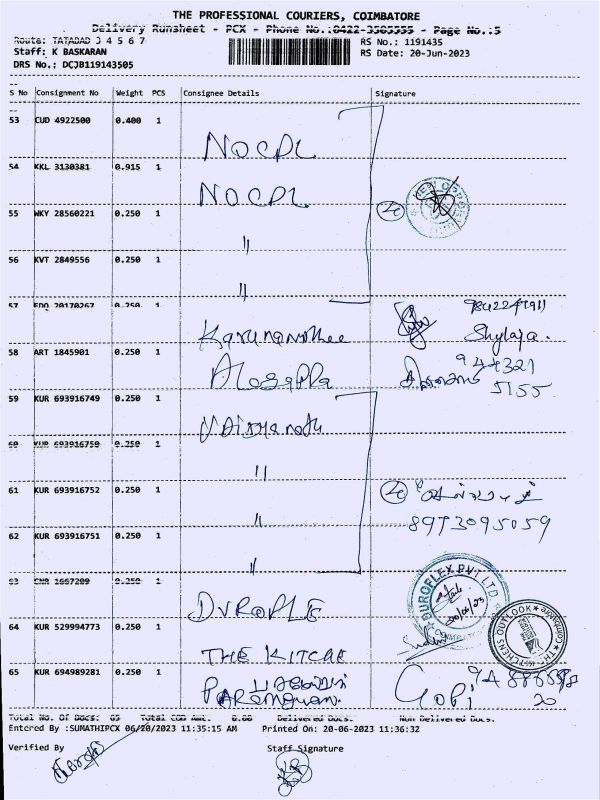 THE PROFESSIONAL COURIERS, COIMBATORE
Delivery Runsheet - PCX - Phone No.:0422-3505555 - Page No.:5
Route: TATADAD 3 4 5 6 7
RS No.: 1191435
Staff: K BASKARAN
RS Date: 20-Jun-2023
DRS No.: DCJB119143505
S No Consignment No Weight PCS Consignee Details Signature
53 CUD 4922500 0.400 1
NOCPL
54 KKL 3130381 0.915 1
NOCPL
55 WKY 28560221 0.250 1
"
56 KVT 2849556 0.250 1
"
57 20170267 0.250 1
9842247911
Shylaja.
58 ART 1845901 0.250 1
Alagappa
944321
5155
59 KUR 693916749 0.250 1
60 KUR 693916750 0.250 1
"
61 KUR 693916752 0.250 1
"
8973095059
62 KUR 693916751 0.250 1
"
63 1667209 0.250 1
DUROFLE
DUROFLEX PVT LTD
64 KUR 529994773 0.250 1
THE KITCHE
THE KITCHENS OUTLOOK
65 KUR 694989281 0.250 1
Gopi
Total No. Of Docs: 65 Total COD Amt. 0.00 Delivered Docs. Non Delivered Docs.
Entered By :SUMATHIPCX 06/20/2023 11:35:15 AM Printed On: 20-06-2023 11:36:32
Verified By Staff Signature